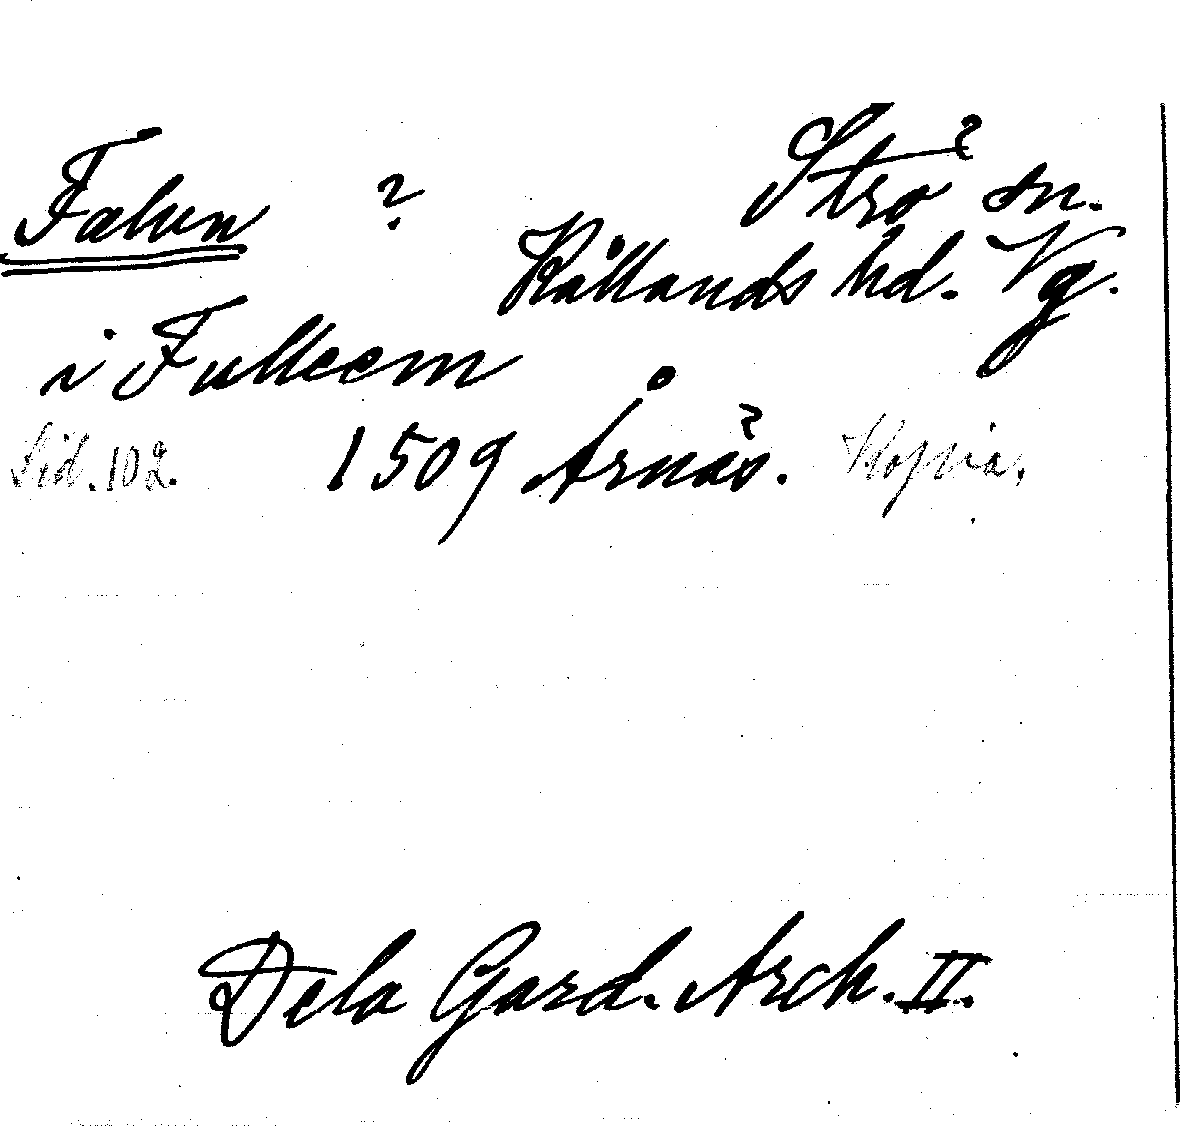 Falun ? Strö sn.
Kållands hd. Vg.
i Fulleem
Sid. 102. 1509 Årnäs. Kopia.
Dela Gard. Arch. II.